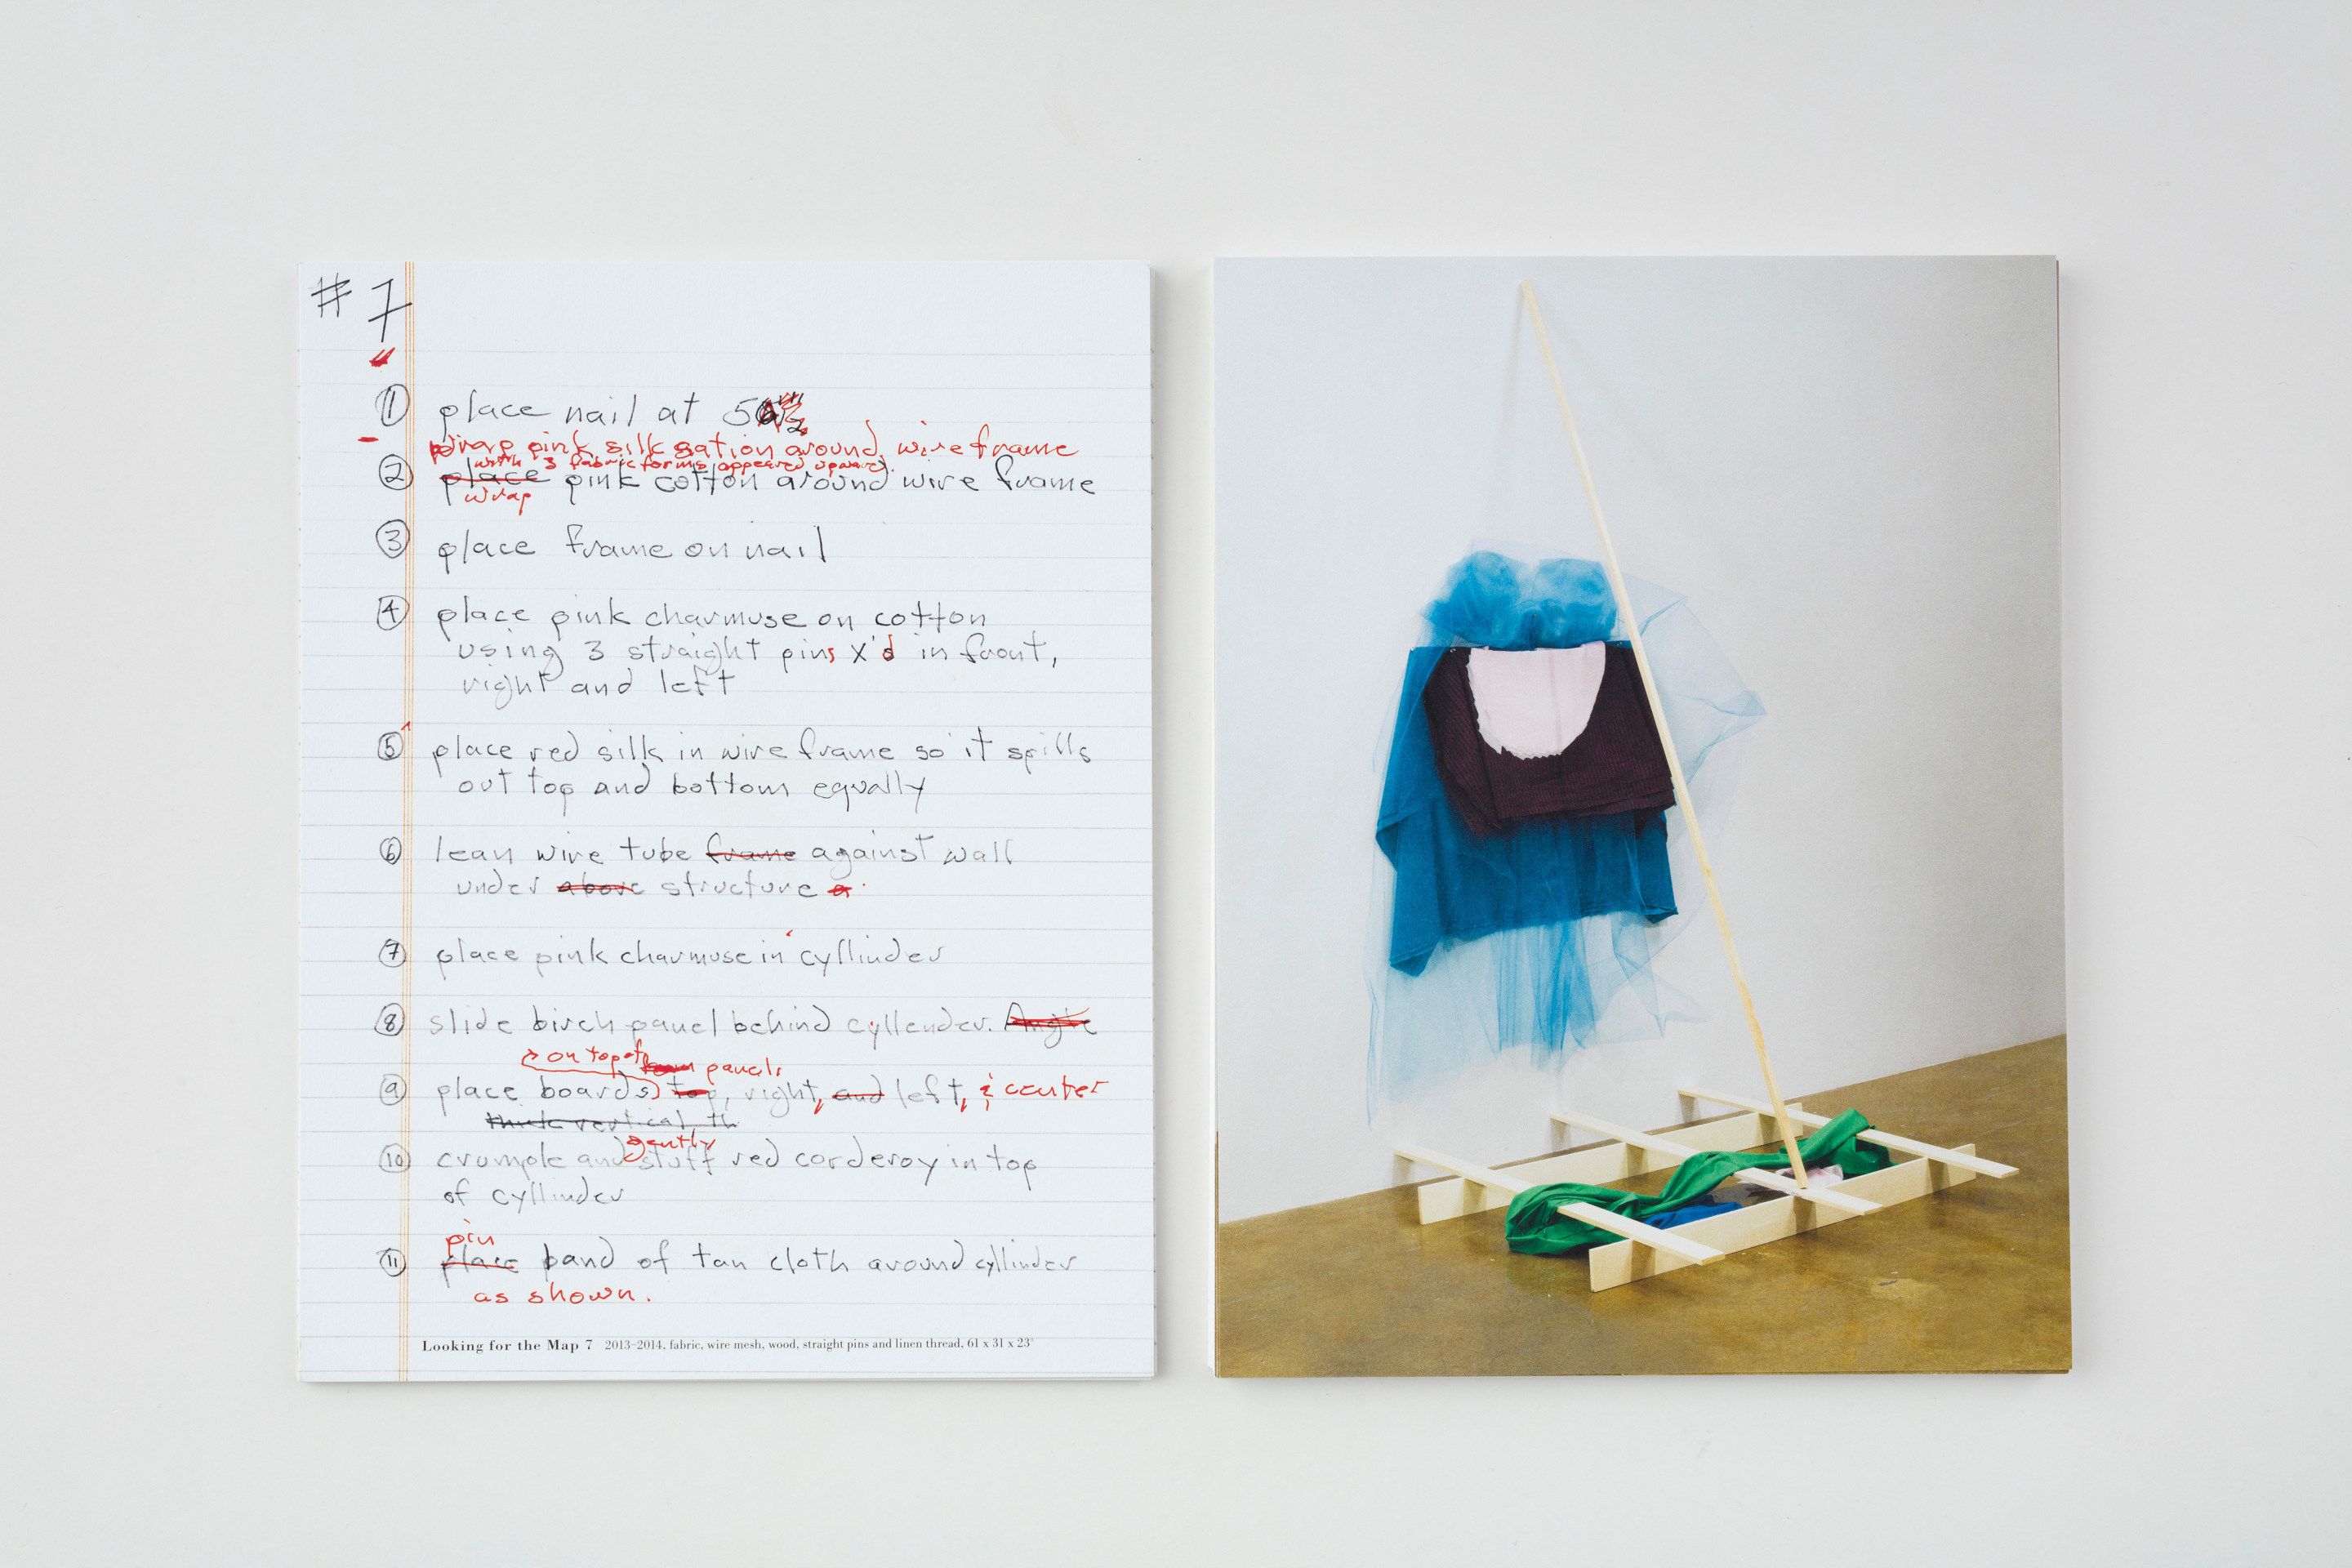 #7
① place nail at
wrap pink silk sation around wire frame
with 3 fabric forms appeared upward.
② place pink cotton around wire frame
wrap
③ place frame on nail
④ place pink charmuse on cotton
using 3 straight pins x'd in front,
right and left
⑤ place red silk in wire frame so it spills
out top and bottom equally
⑥ lean wire tube frame against wall
under above structure a
⑦ place pink charmuse in cyllinder
⑧ slide birch panel behind cyllender. Angle
on top of panels
⑨ place boards top, right, and left, & center
thick vertical, th
gently
⑩ crumple and stuff red corderoy in top
of cyllinder
pin
⑪ place band of tan cloth around cyllinder
as shown.
Looking for the Map 7 2013–2014, fabric, wire mesh, wood, straight pins and linen thread, 61 x 31 x 23"